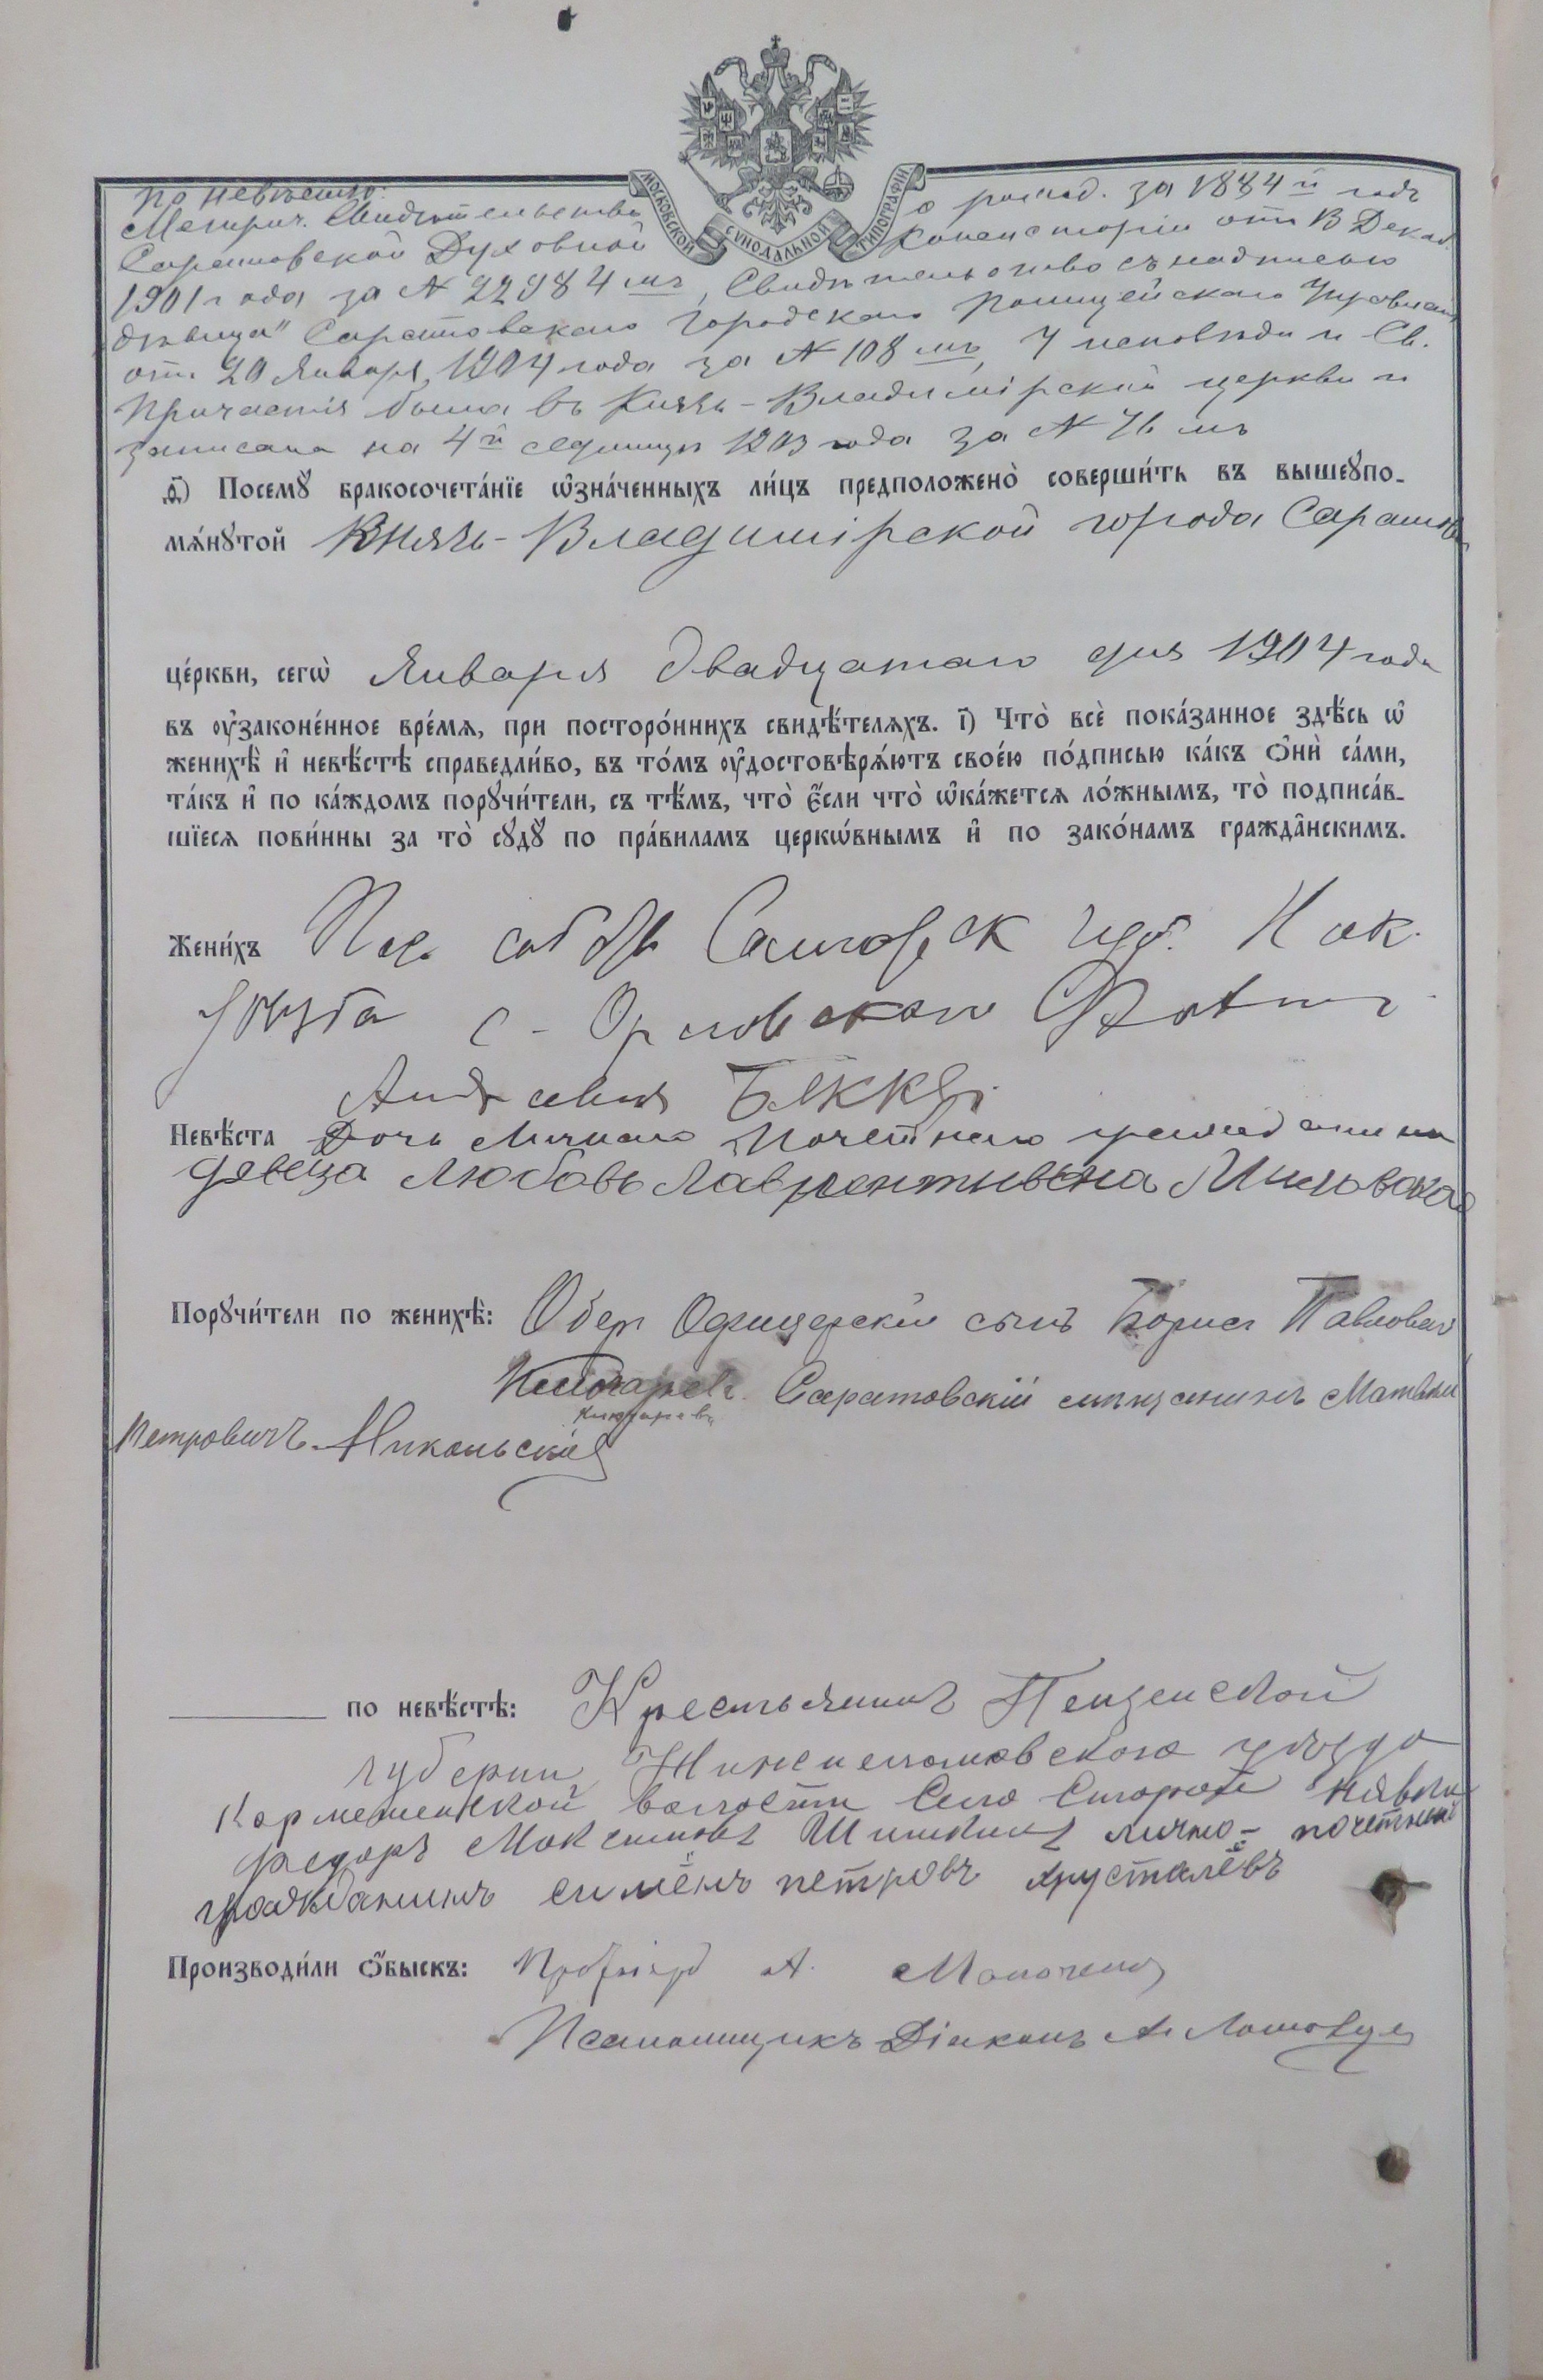 МОСКОВСКОЙ СѴНОДАЛЬНОЙ ТИПОГРАФІИ
По невѣстѣ:
Метрич. Свидѣтельство о рожд. за 1884 й годъ
Саратовской Духовной Консисторіи отъ 13 Декаб.
1901 года за № 22984 мъ, Свидѣтельство съ надписью
дѣвица" Саратовскаго Городскаго Полицейскаго Управленія
отъ 20 Января 1904 года за № 108 мъ, У исповѣди и Св.
Причастія была въ Князь-Владимірской церкви и
записана на 4й седмицѣ 1903 года за № 76 мъ
Ѳ҃) Посемꙋ̀ бракосочета́нїе ѡ҆зна́ченныхъ ли́цъ предположено̀ соверши́ть въ вышеꙋпо-
мѧ́нꙋтой Князь-Владимірской города Саратова
це́ркви, сегѡ̀ Января двадцатаго дня 1904 года
въ ᲂу҆законе́нное вре́мѧ, при посторо́ннихъ свидѣ́телѧхъ. І҃) Что̀ всѐ пока́занное здѣ́сь ѡ҆
женихѣ̀ и҆ невѣ́стѣ справедли́во, въ то́мъ ᲂу҆достовѣрѧ́ютъ свое́ю по́дписью ка́къ ѻ҆нѝ са́ми,
та́къ и҆ по ка́ждомъ порꙋчи́тели, съ тѣ́мъ, что̀ є҆́сли что̀ ѡ҆ка́жетсѧ ло́жнымъ, то̀ подписа́в-
шїесѧ пови́нны за то̀ сꙋдꙋ̀ по пра́виламъ церкѡ́внымъ и҆ по зако́намъ гражда̑нскимъ.
Жени́хъ Пос. собств Самарск губ. Ник.
уѣзда с. Орловскаго
Беккеръ
Невѣ́ста Дочь Личнаго Почетнаго гражданина
девеца Любовь Лаврентьевна
Порꙋчи́тели по женихѣ̀: Обер Офицерскій сынъ Борисъ Павловъ
Ключаревъ Саратовскій мѣщанинъ Матвѣй
Ключаревъ
Петровичъ Никольскій
по невѣ́стѣ: Крестьянинъ Пензенской
губерни Нижнеломовскаго уѣзда
волости Село Старой
Федоръ Максимовъ Шишкинъ лично-почетный
гражданинъ симёнъ петровъ хрусталёвъ
Производи́ли ѻ҆́быскъ: Протоіерей А.
Псаломщикъ Діаконъ А.